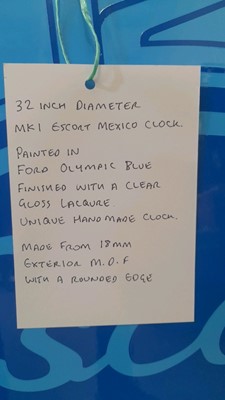 32 INCH DIAMETER
MK1 ESCORT MEXICO CLOCK.
PAINTED IN
FORD OLYMPIC BLUE
FINISHED WITH A CLEAR
GLOSS LACQURE.
UNIQUE HANDMADE CLOCK.
MADE FROM 18MM
EXTERIOR M.D.F
WITH A ROUNDED EDGE